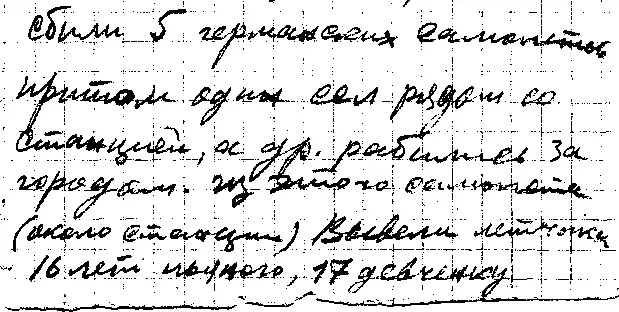 сбили 5 германских самолетов
притом один сел рядом со
станцией, а др. разбились за
городом. Из этого самолета
(около станции) Вывели летчика
16 лет пьяного, 17 девченку